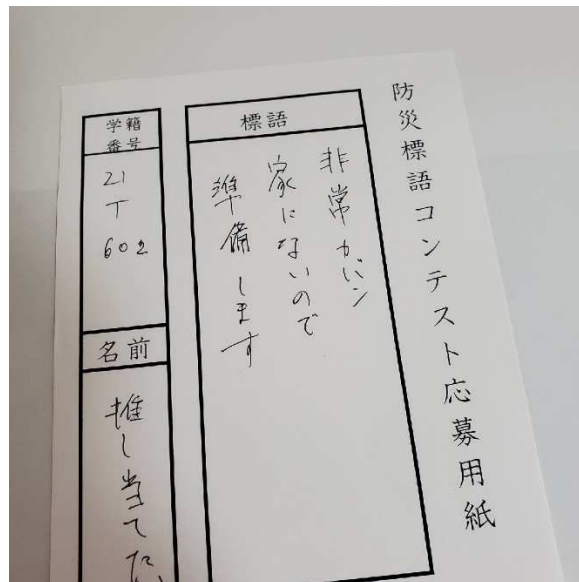 防災標語コンテスト応募用紙
標語
非常カバン
家にないので
準備します
学籍
番号
21
T
602
名前
推し当てたい